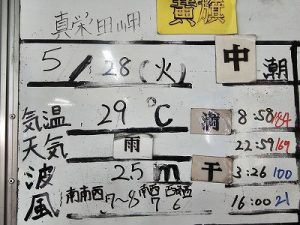 真栄田岬 黄旗
5/28(火) 中潮
気温 29℃ 満 8:58 184
天気 雨 22:59 169
波 2.5m 干 3:26 100
風 南南西 7~8 南西 7 西 6 16:00 21